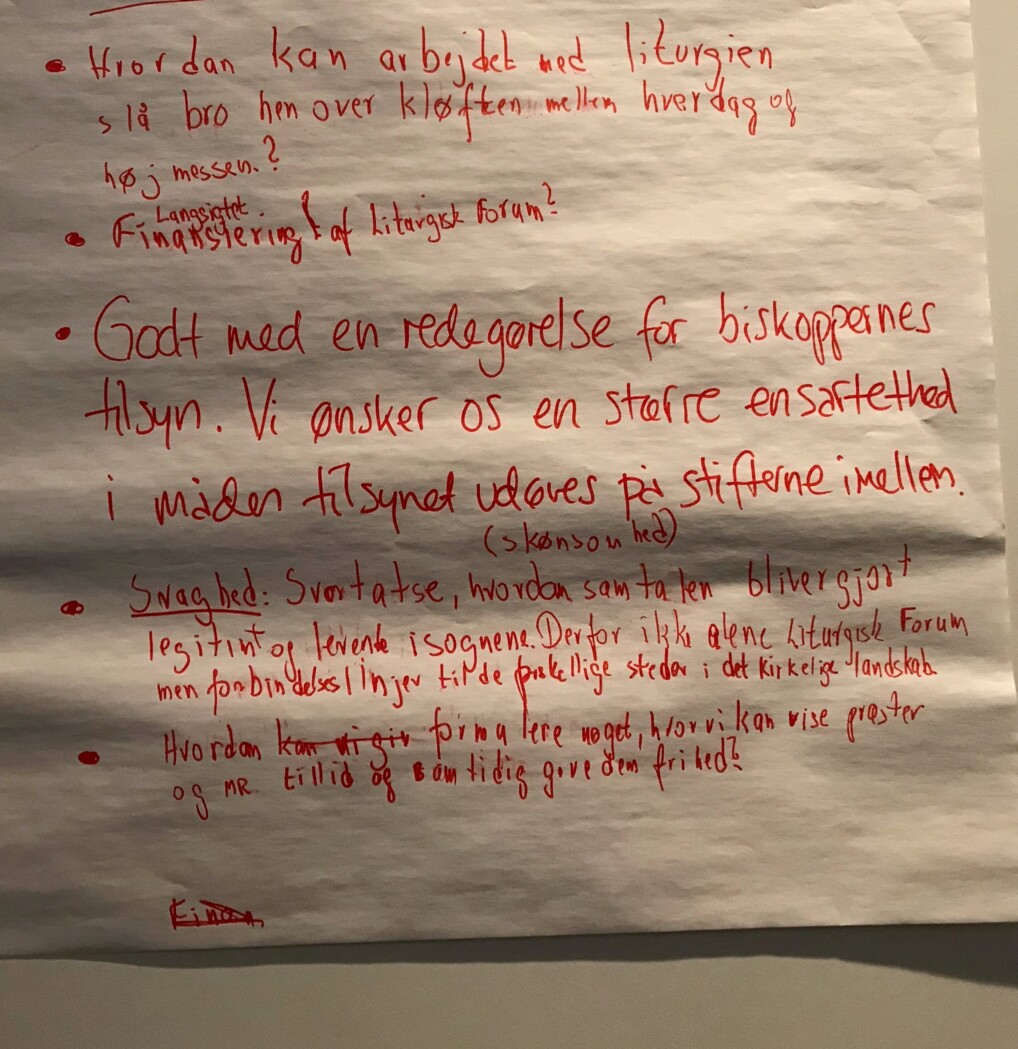 • Hvordan kan arbejdet med liturgien
slå bro hen over kløften mellem hverdag og
højmessen.?
Langsigtet
• Finansiering af Liturgisk Forum?
• Godt med en redegørelse for biskoppernes
tilsyn. Vi ønsker os en større ensartethed
i måden tilsynet udøves på stifterne imellem.
(skønsomhed)
• Svaghed: Svært at se, hvordan samtalen bliver gjort
legitimt og levende i sognene. Derfor ikke alene Liturgisk Forum
men forbindelseslinjer til de forskellige steder i det kirkelige landskab
• Hvordan kan vi giv formulere noget, hvor vi kan vise præster
og MR tillid og samtidig give dem frihed?